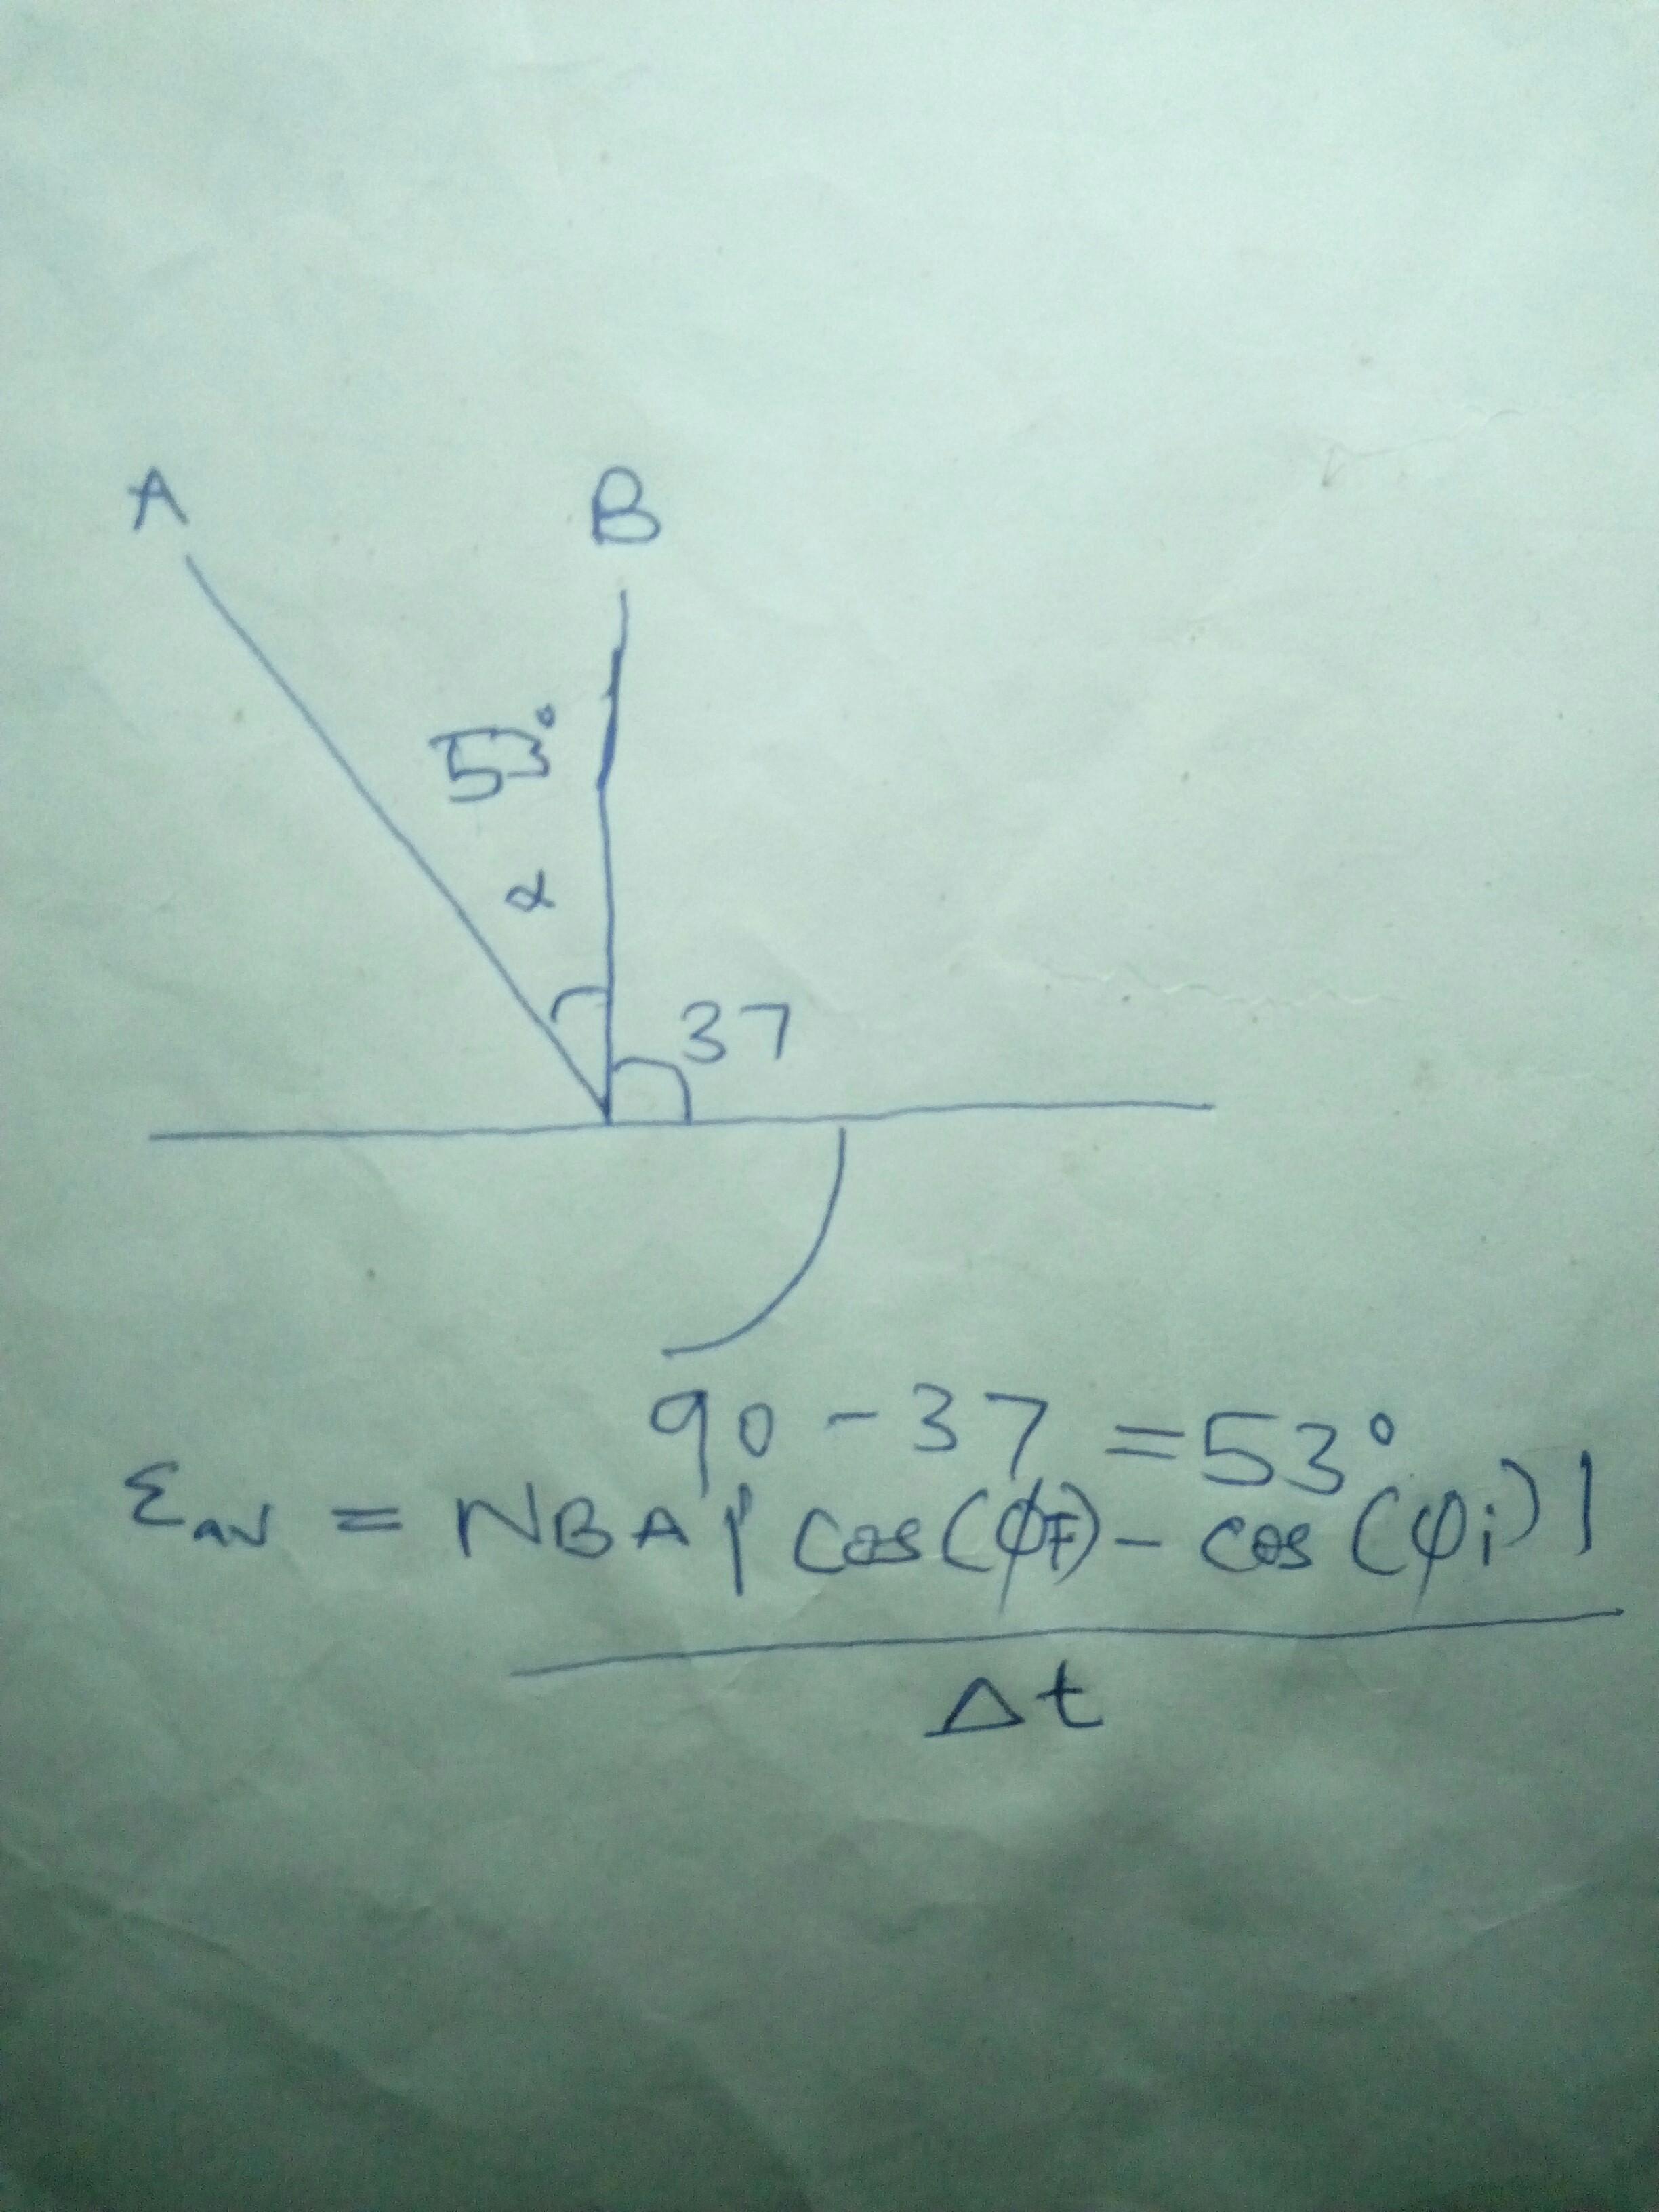 A B
53°
α
37
90 - 37 = 53°
Ɛav = NBA | cos(ϕF) - cos(ϕi) |
Δt